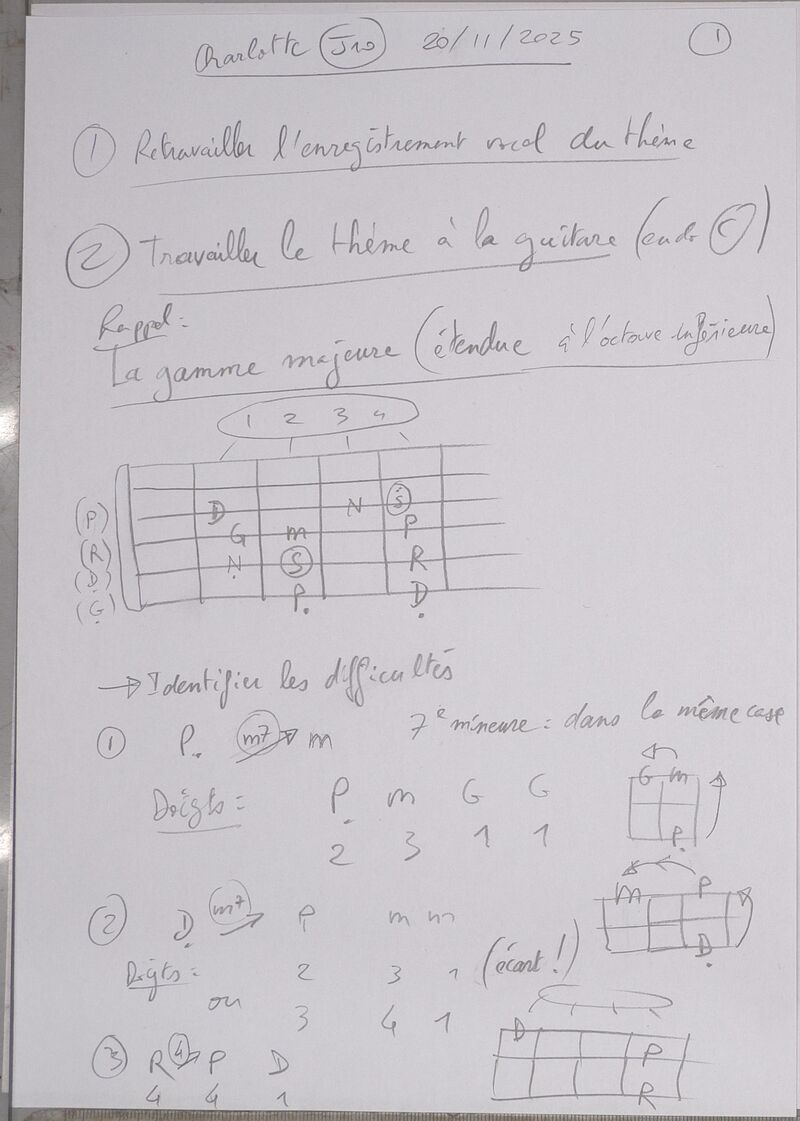 Charlotte J10 20/11/2025 1
1 Retravailler l'enregistrement vocal du thème
2 Travailler le thème à la guitare (en do C)
Rappel:
La gamme majeure (étendue à l'octave inférieure)
1 2 3 4
(P) D N S
(R) G m P
(D) N S R
(G) P D
→ Identifier les difficultés
1 P m7 m 7e mineure = dans la même case
G m
Doigts = P m G G
2 3 1 1
P
2 D m7 P m m
m P
D
Doigts = 2 3 1 (écart !)
ou 3 4 1
3 R 4 P D
4 4 1
D
P
R